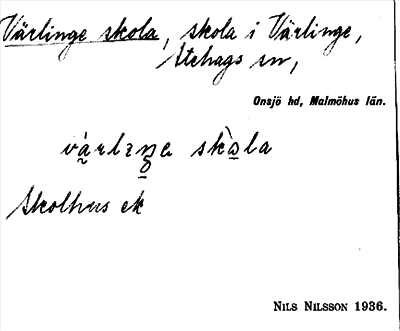 Värlinge skola, skola i Värlinge,
Stehags sn,
Onsjö hd, Malmöhus län.
Skolhus ek
NILS NILSSON 1936.